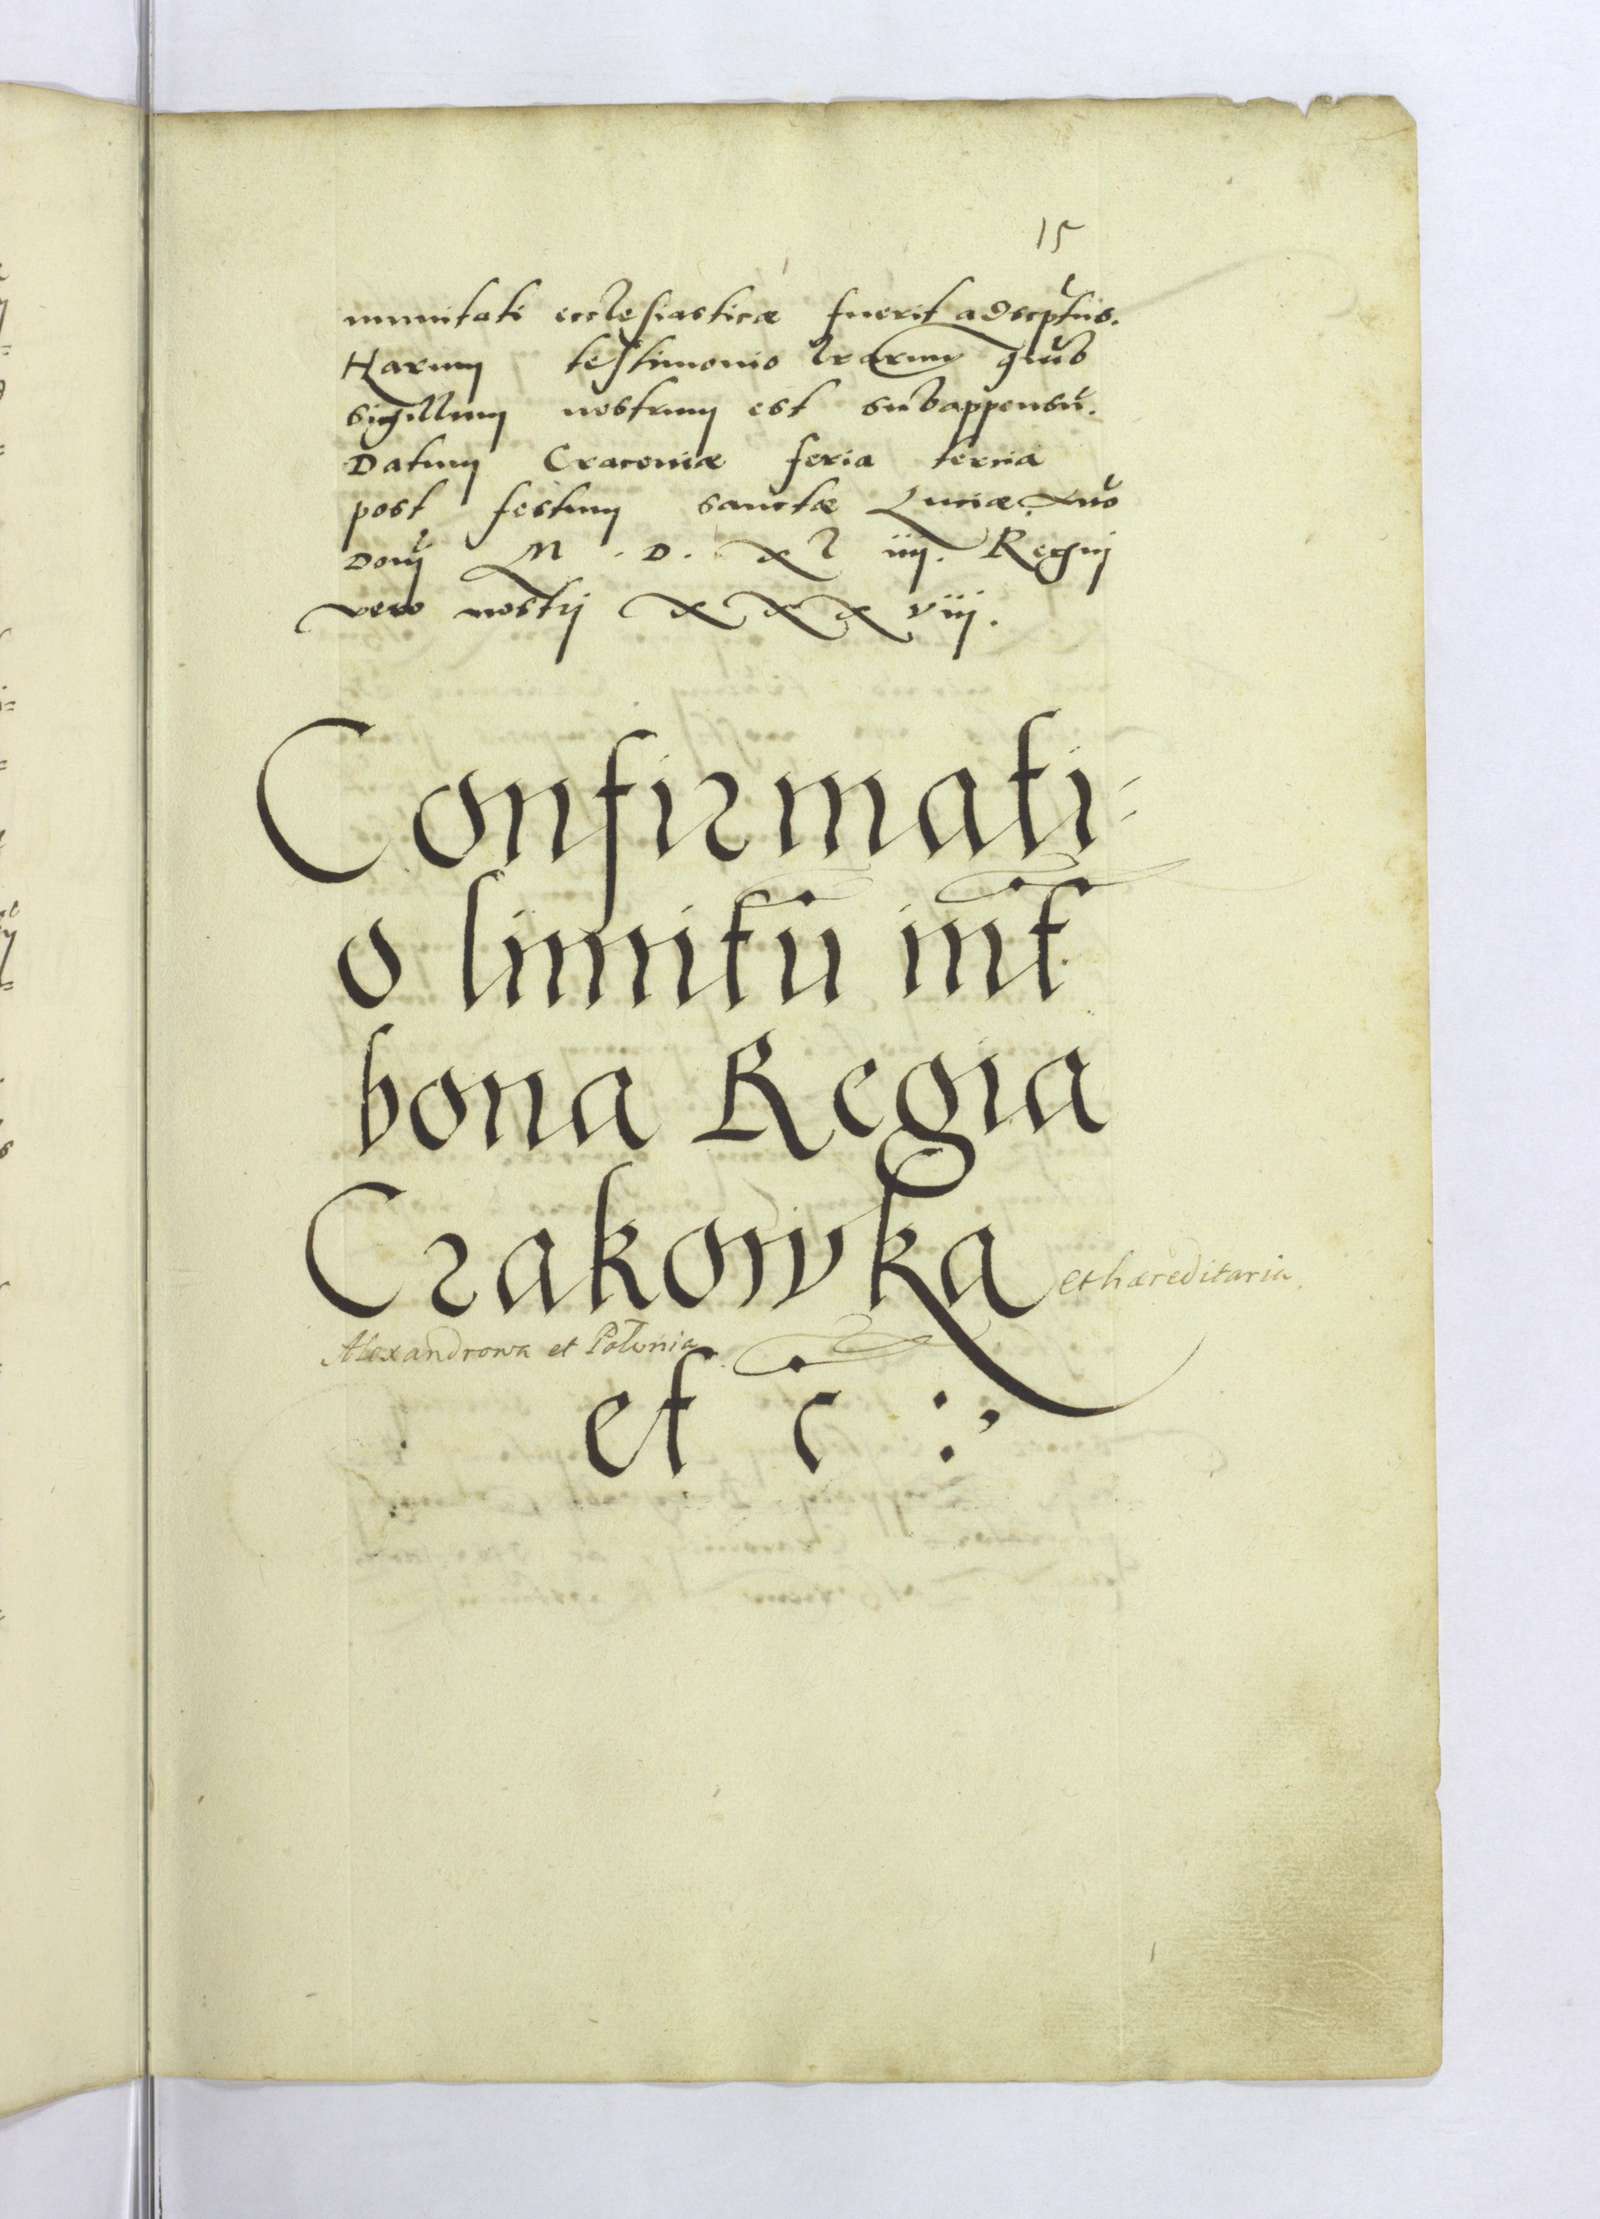 15
munitati ecclesiasticæ fuerit adscptus.
Harum testimonio lrarum quib
sigillum nostrum est subappensū.
Datum Cracoviæ feria tercia
post festum sanctæ Luciæ. Año
Domį M . D . xl iiij. Regnij
vero nostrij x x x viij.
Confirmati=
o limitū int
bona Regia
Crakowka et hæreditaria
Alexandrowa et Polonia
et c :,